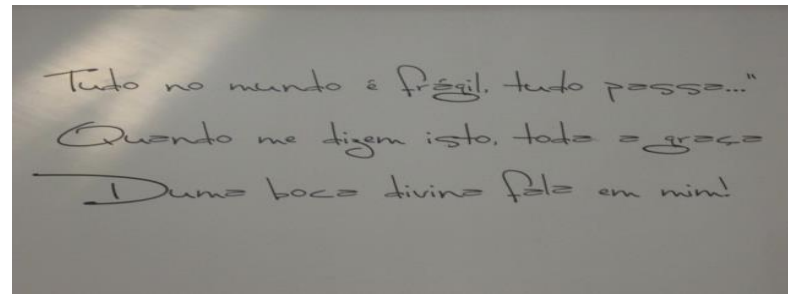 Tudo no mundo é frágil, tudo passa..."
Quando me dizem isto, toda a graça
Duma boca divina fala em mim!